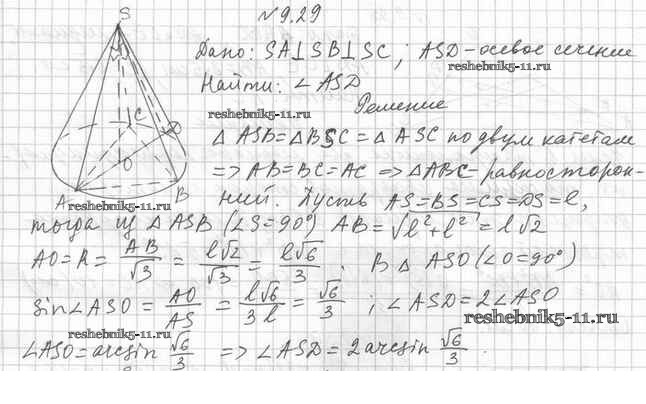 №9.29
Дано: SA⊥SB⊥SC; ASD-осевое сечение
reshebnik5-11.ru
Найти: ∠ASD
reshebnik5-11.ru
Решение
△ASB=△BSC=△ASC по двум катетам
=> AB=BC=AC => △ABC-равносторон-
ний. Пусть AS=BS=CS=DS=l,
тогда из △ASB (∠S=90°) AB=√(l²+l²)=l√2
AO=R=AB/√3=l√2/√3=l√6/3. В △ASO (∠O=90°)
sin∠ASO=AO/AS=l√6/3l=√6/3; ∠ASD=2∠ASO
reshebnik5-11.ru
reshebnik5-11.ru
∠ASO=arcsin √6/3 => ∠ASD=2arcsin √6/3.
S
C
D
O
A
B